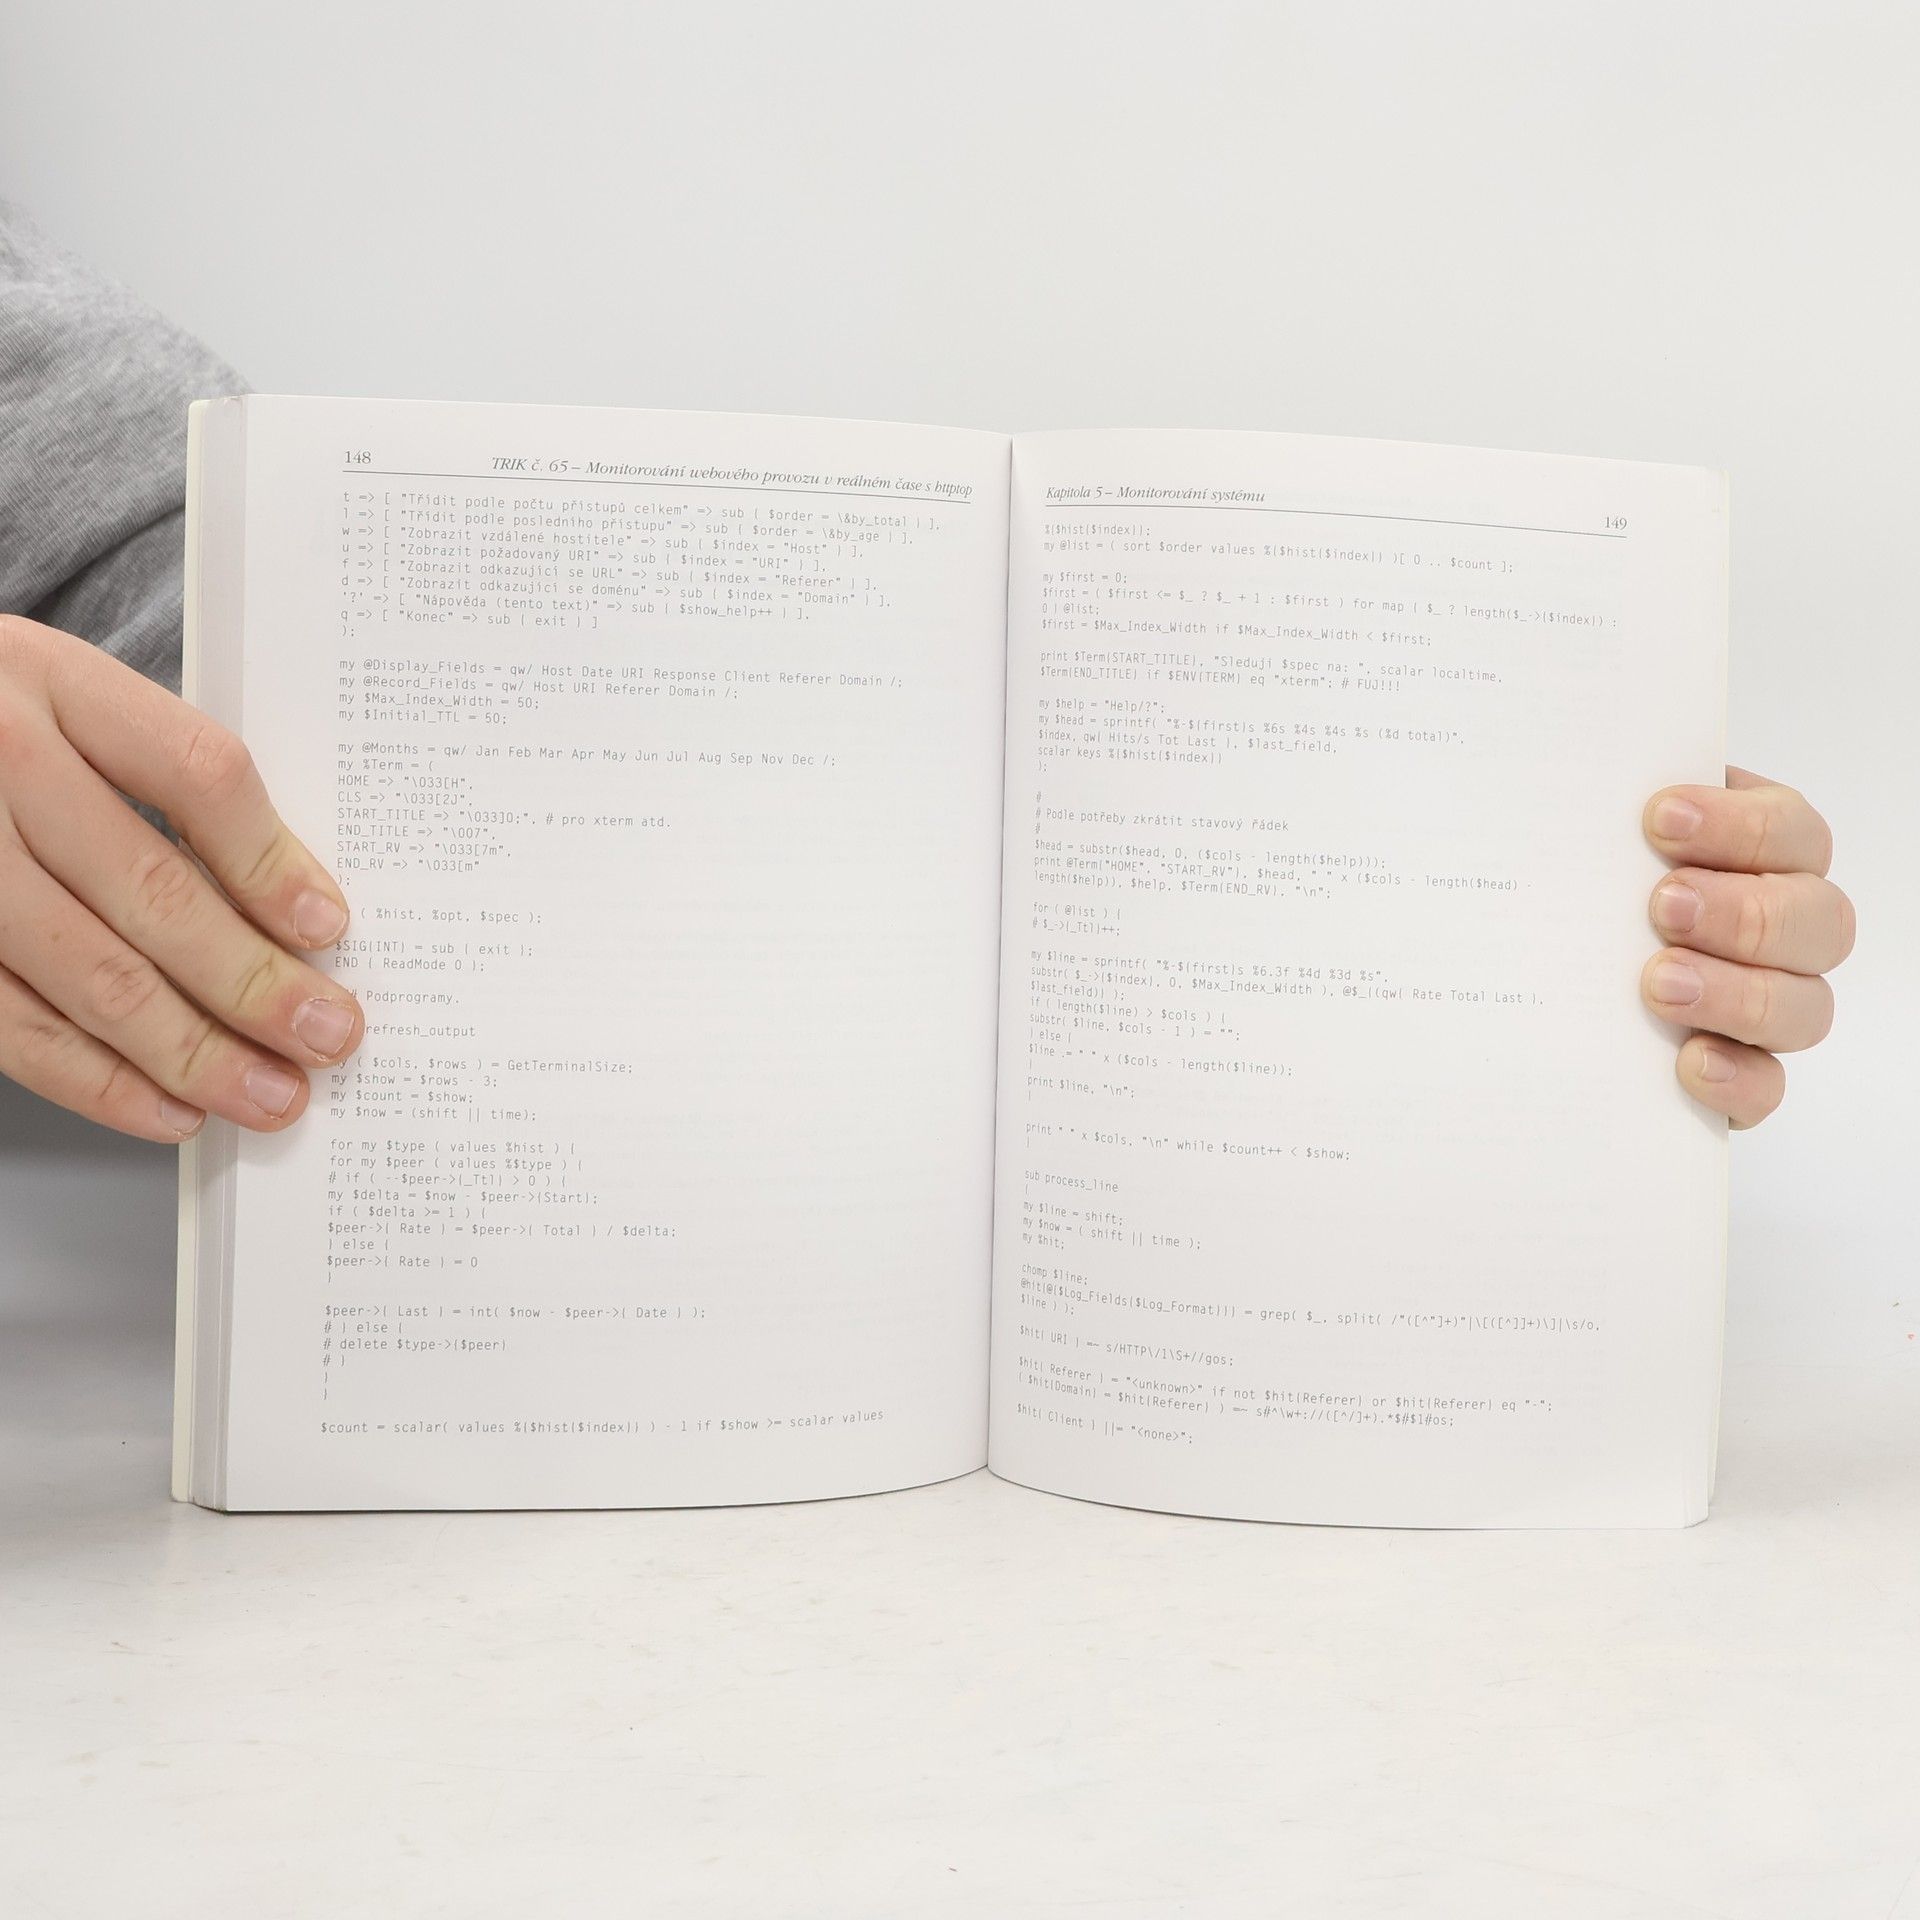 148
TRIK č. 65 – Monitorování webového provozu v reálném čase s httptop
t => [ "Třídit podle počtu přístupů celkem" => sub { $order = \&by_total } ],
l => [ "Třídit podle posledního přístupu" => sub { $order = \&by_age } ],
w => [ "Zobrazit vzdálené hostitele" => sub { $index = "Host" } ],
u => [ "Zobrazit požadovaný URI" => sub { $index = "URI" } ],
f => [ "Zobrazit odkazující se URL" => sub { $index = "Referer" } ],
d => [ "Zobrazit odkazující se doménu" => sub { $index = "Domain" } ],
'?' => [ "Nápověda (tento text)" => sub { $show_help++ } ],
q => [ "Konec" => sub { exit } ]
);
my @Display_Fields = qw/ Host Date URI Response Client Referer Domain /;
my @Record_Fields = qw/ Host URI Referer Domain /;
my $Max_Index_Width = 50;
my $Initial_TTL = 50;
my @Months = qw/ Jan Feb Mar Apr May Jun Jul Aug Sep Nov Dec /;
my %Term = (
HOME => "\033[H",
CLS => "\033[2J",
START_TITLE => "\033]0;", # pro xterm atd.
END_TITLE => "\007",
START_RV => "\033[7m",
END_RV => "\033[m"
);
( %hist, %opt, $spec );
$SIG{INT} = sub { exit };
END { ReadMode 0 };
# Podprogramy.
refresh_output
my ( $cols, $rows ) = GetTerminalSize;
my $show = $rows - 3;
my $count = $show;
my $now = (shift || time);
for my $type ( values %hist ) {
for my $peer ( values %$type ) {
# if ( --$peer->{_Ttl} > 0 ) {
my $delta = $now - $peer->{Start};
if ( $delta >= 1 ) {
$peer->{ Rate } = $peer->{ Total } / $delta;
} else {
$peer->{ Rate } = 0
}
$peer->{ Last } = int( $now - $peer->{ Date } );
# } else {
# delete $type->{$peer}
# }
}
}
$count = scalar( values %{$hist{$index}} ) - 1 if $show >= scalar values
Kapitola 5 – Monitorování systému
149
%{$hist{$index}};
my @list = ( sort $order values %{$hist{$index}} )[ 0 .. $count ];
my $first = 0;
$first = ( $first <= $_ ? $_ + 1 : $first ) for map { $_ ? length($_->{$index}) :
0 } @list;
$first = $Max_Index_Width if $Max_Index_Width < $first;
print $Term{START_TITLE}, "Sleduji $spec na: ", scalar localtime,
$Term{END_TITLE} if $ENV{TERM} eq "xterm"; # FUJ!!!
my $help = "Help/?";
my $head = sprintf( "%-${first}s %6s %4s %4s %s (%d total)",
$index, qw{ Hits/s Tot Last }, $last_field,
scalar keys %{$hist{$index}}
);
#
# Podle potřeby zkrátit stavový řádek
#
$head = substr($head, 0, ($cols - length($help)));
print @Term{"HOME", "START_RV"}, $head, " " x ($cols - length($head) -
length($help)), $help, $Term{END_RV}, "\n";
for ( @list ) {
# $_->{_Ttl}++;
my $line = sprintf( "%-${first}s %6.3f %4d %3d %s",
substr( $_->{$index}, 0, $Max_Index_Width ), @$_{(qw{ Rate Total Last },
$last_field)} );
if ( length($line) > $cols ) {
substr( $line, $cols - 1 ) = "";
} else {
$line .= " " x ($cols - length($line));
}
print $line, "\n";
}
print " " x $cols, "\n" while $count++ < $show;
}
sub process_line
{
my $line = shift;
my $now = ( shift || time );
my %hit;
chomp $line;
@hit{@{$Log_Fields{$Log_Format}}} = grep( $_, split( /"([^"]+)"|\[([^]]+)\]|\s/o,
$line ) );
$hit{ URI } =~ s/HTTP\/1\S+//gos;
$hit{ Referer } = "<unknown>" if not $hit{Referer} or $hit{Referer} eq "-";
( $hit{Domain} = $hit{Referer} ) =~ s#^\w+://([^/]+).*$#$1#os;
$hit{ Client } ||= "<none>";